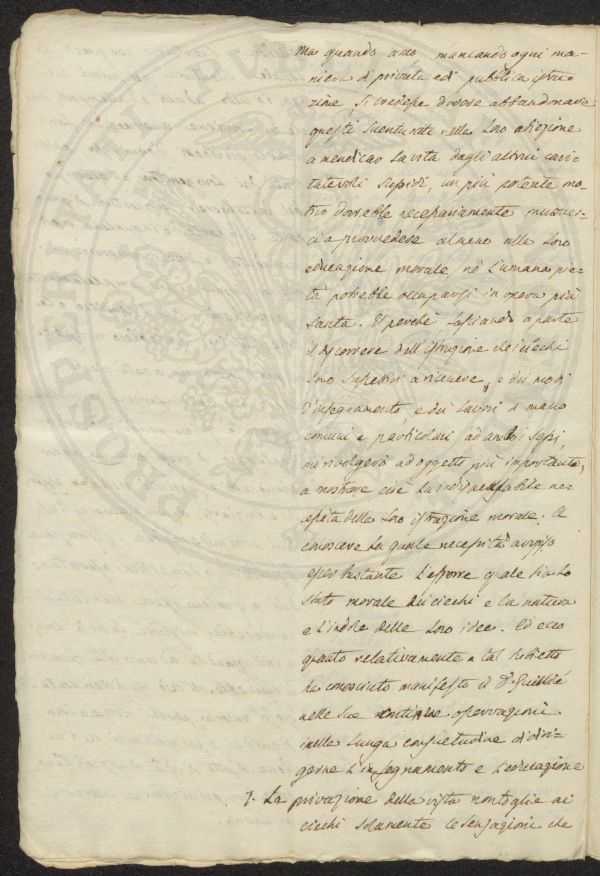 Ma quando anco mancando ogni ma-
niera di privata ed pubblica istru-
zione si credesse dovere abbandonare
questi sventurati nella loro abiezione
a mendicar la vita dagli altrui cari-
tatevoli sussidi, un più potente mo-
tivo dovrebbe necessariamente muover-
ci a provvedere almeno alla loro
educazione morale, né l'umana pie-
tà potrebbe occuparsi in opera più
santa. Il perché lasciando a parte
il discorrere dell'istruzione che i ciechi
sono suscettivi a ricevere, e dei modi
d'insegnamento e dei lavori di mano
comuni e particolari ad ambi i sessi,
mi rivolgerò ad oggetto più importante,
a mostrare cioè la indispensabile ne-
cessità della loro istruzione morale. A
conoscere la quale necessità avviso
esser bastante l'esporre quale sia lo
stato morale dei ciechi e la natura
e l'indole delle loro idee. Ed ecco
quanto relativamente a tal subietto
ha conosciuto manifesto il Dr Guillié
nelle sue continue osservazioni
nella lunga consuetudine di diri-
gerne l'insegnamento e l'educazione
7. La privazione della vista non toglie ai
ciechi solamente le sensazioni che